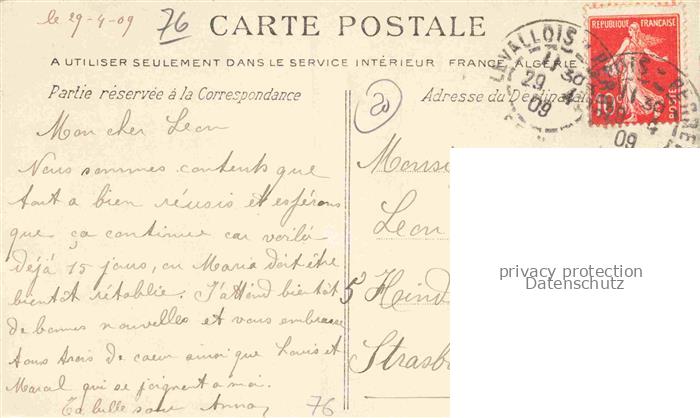 le 29-4-09
76
CARTE POSTALE
A UTILISER SEULEMENT DANS LE SERVICE INTÉRIEUR FRANCE, ALGÉRIE
Partie réservée à la Correspondance
Adresse du Destinataire
20
REPUBLIQUE FRANÇAISE
10
LEVALLOIS-P
11 30
29 -4
09
Mon cher Leon
Nous sommes contents que
tout a bien réussis et espérons
que ça continue car voilà
déjà 15 jours, ou Maria doit être
bientôt rétablie. J'attend bientôt
de bonnes nouvelles et vous embrasse
tous trois de cœur ainsi que Louis et
Marcel qui se joignent a moi.
Ta belle sœur Anna
76
Monsi
Leon
5 Heind
Strasb
privacy protection
Datenschutz